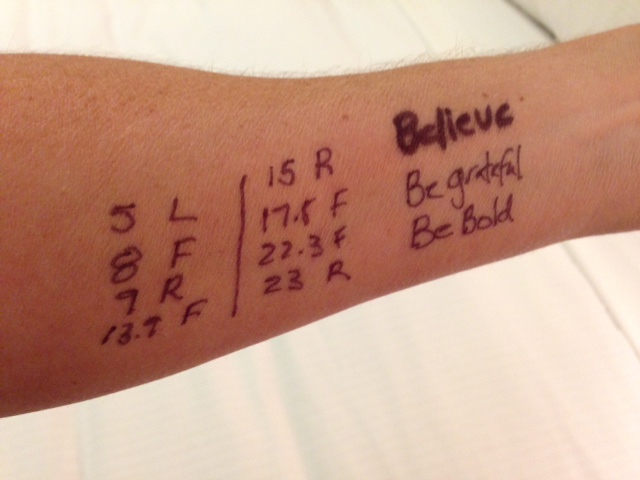 5 L
8 F
9 R
13.9 F
15 R
17.5 F
22.3 F
23 R
Believe
Be grateful
Be Bold